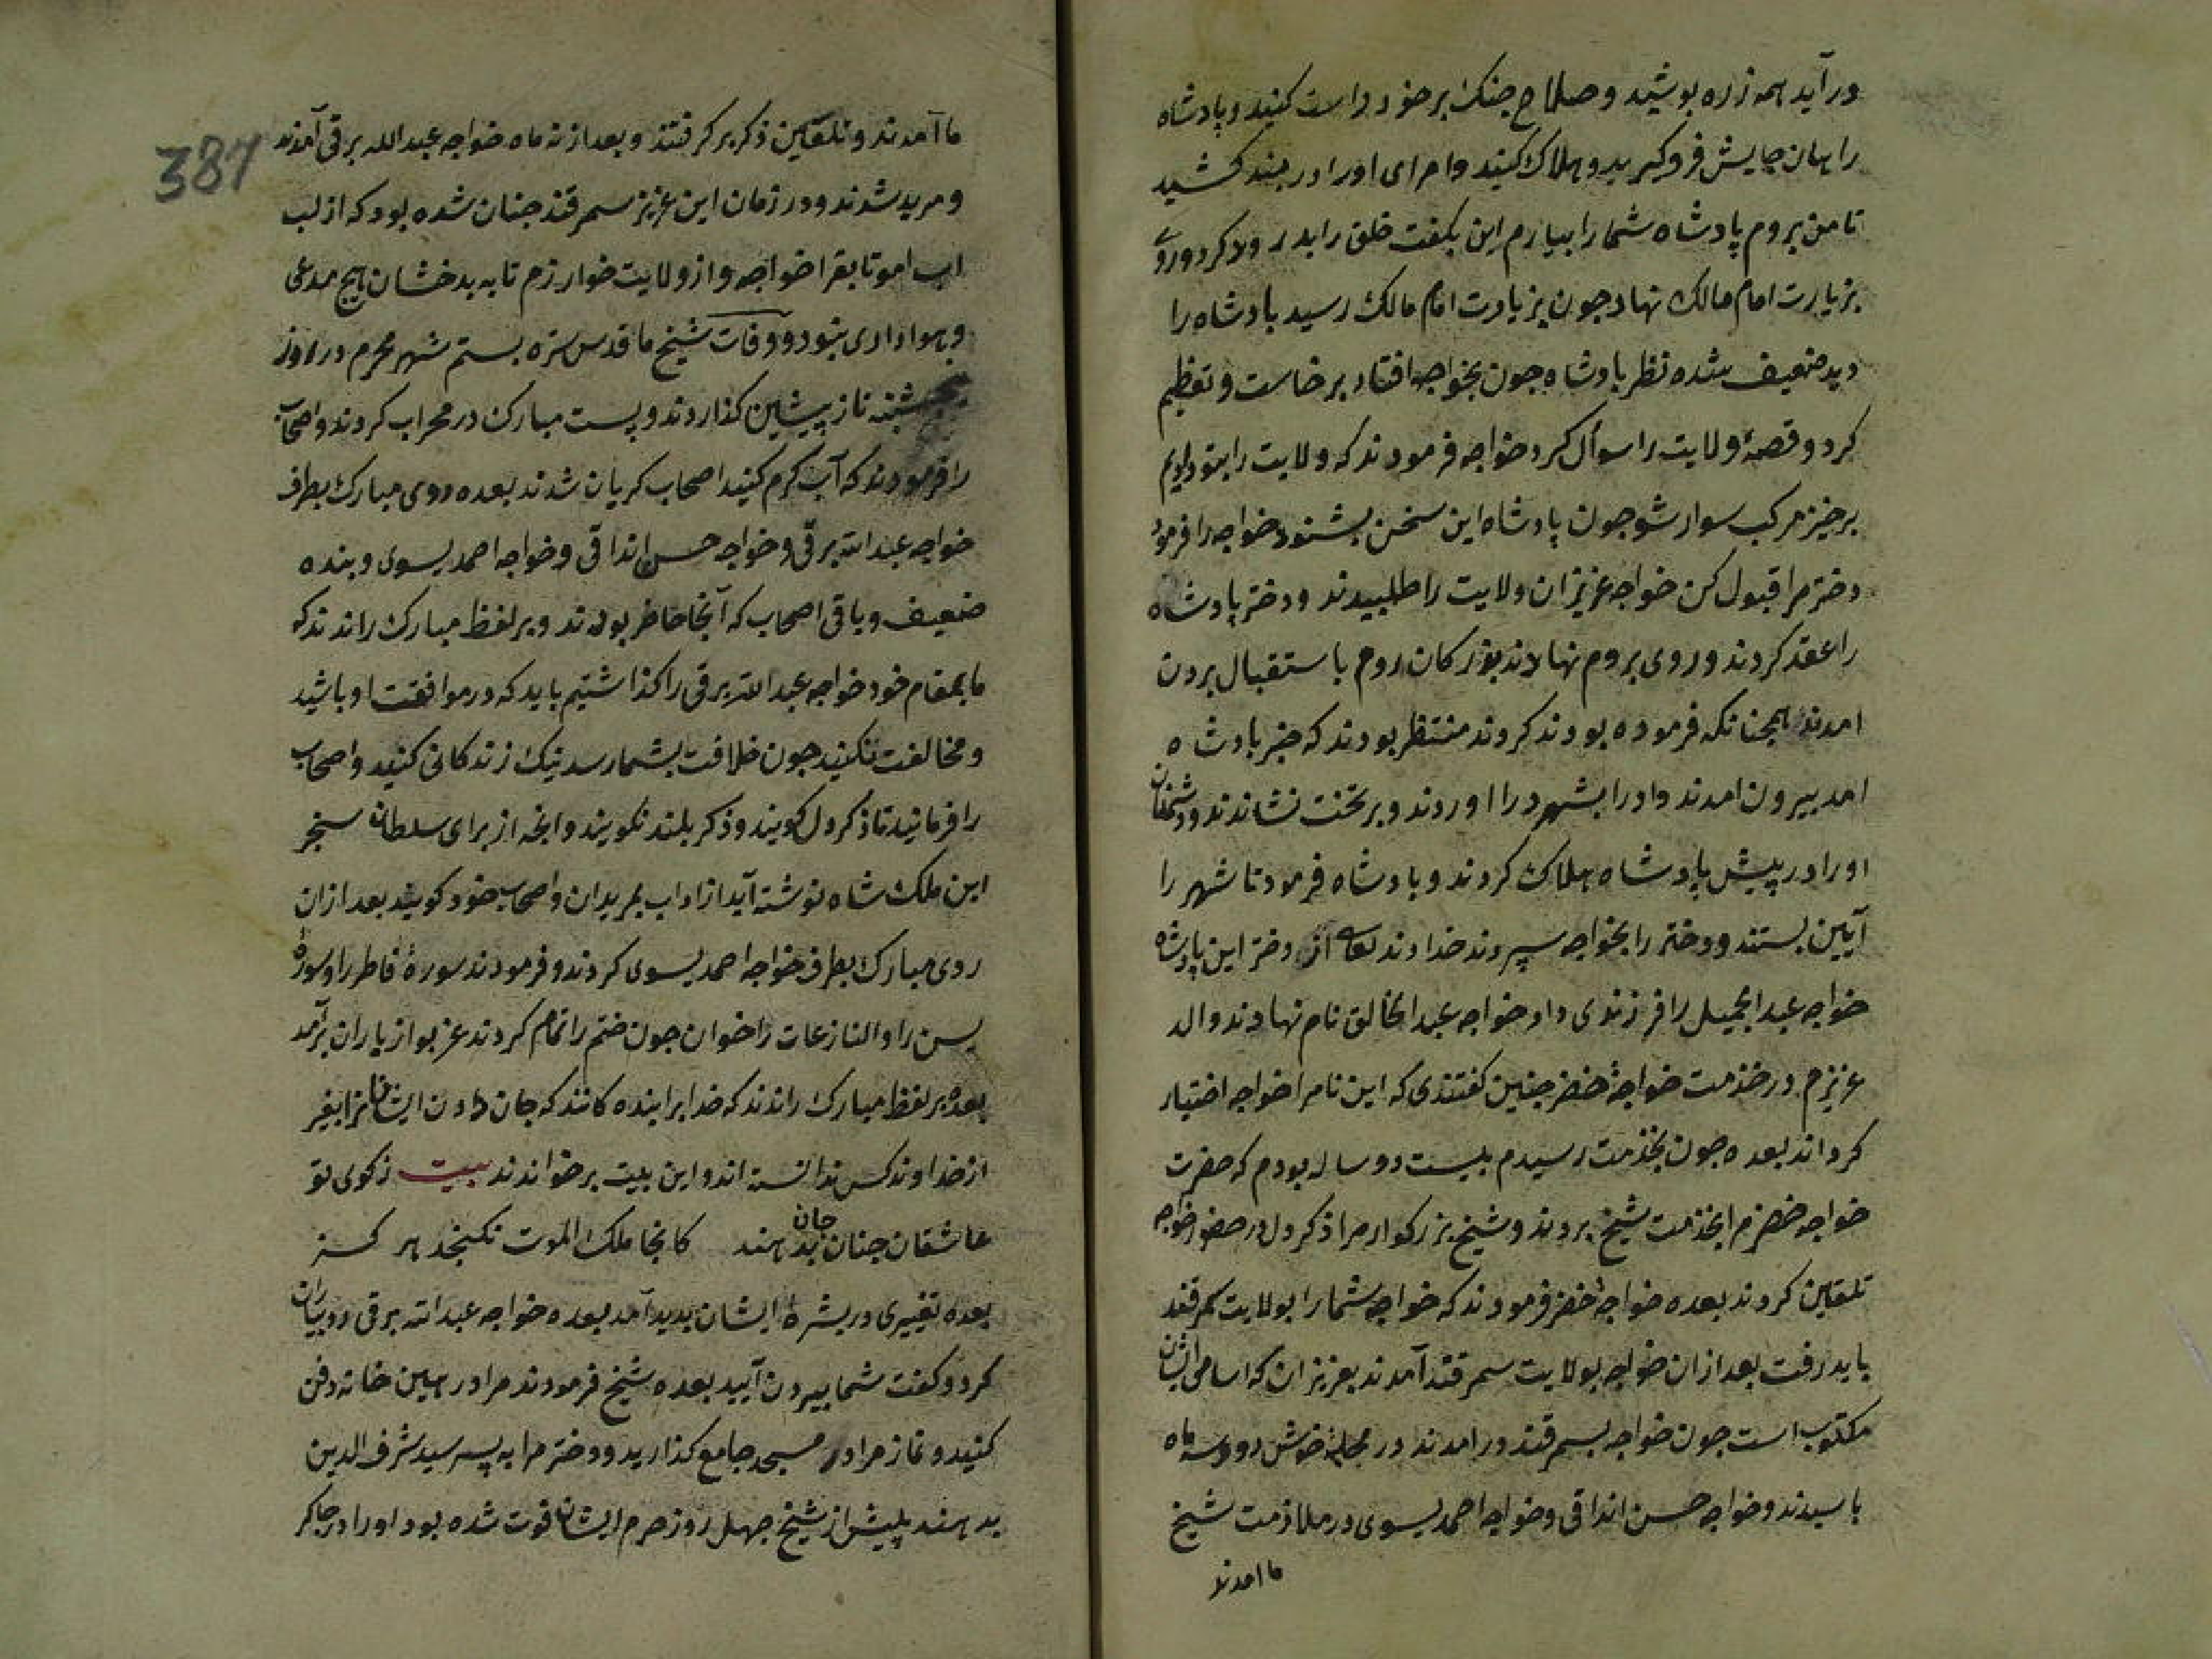 درآید همه زره بوشید و صلاح جنک بر خود راست کنید و پادشاه
را همان جایش فروکیرید و هلاک کنید و امرای او را در بند کشید
تا من بروم پادشاه شما را بیارم این بکفت خلق را بدر ولا کرد و روی
بزیارت امام مالک نهاد جون بزیارت امام مالک رسید بادشاه را
دید ضعیف شده نظر بادشاه جون بخواجه افتاد برخاست و تعظیم
کرد و قصهٔ ولایت را سوأل کرد خواجه فرمودند که ولایت را بتو دادیم
برخیز مرکب سوار شو جون پادشاه این سخن بشنود خواجه را فرمود
دختر مرا قبول کن خواجه عزیزان ولایت را طلبیدند و دختر پادشاه
را عقد کردند و روی بروم نهادند بزرکان روم باستقبال برون
امدند همجنانکه فرموده بودند کردند منتظر بودند که خبر بادشاه
امد بیرون امدند و او را بشهر در اوردند و بر تخت نشاندند و دشمنان
او را در پیش پادشاه هلاک کردند و بادشاه فرمود تا شهر را
آیین بستند و دختر را بخواجه سپردند خداوند تعالی از دختر این پادشاه
خواجه عبد الجمیل را فرزندی داد خواجه عبد الخالق نام نهادند والد
عزیزم در خدمت خواجهٔ خضر جنین کفتندی که این نام را خواجه اختیار
کرداند بعده جون بخدمت رسیدم بیست دو ساله بودم که حضرت
خواجه خضرم ابخدمت شیخ بردند و شیخ بزرکوار مرا ذکر دل در حضور خواجه
تلقین کردند بعده خواجهٔ خضر فرمودند که خواجه شما را بولایت سمرقند
باید رفت بعد ازان خواجه بولایت سمرقند آمدند بعزیزان که اسامی ایشان
مکتوب است جون خواجه بسمرقند در امدند در محلهٔ خوش رود سه ماه
باسیدند و خواجه حسن انداقی و خواجه احمد یسوی در ملازمت شیخ
ما امدند
387
ما آمدند و تلقین ذکر بر کرفتند و بعد از نه ماه خواجه عبد الله برقی آمدند
و مرید شدند و در زمان این عزیز سمرقند جنان شده بود که از لب
اب امو تا بقرا خواجه و از ولایت خوارزم تا به بدخشان هیج مدعی
و هواداری نبود و وفات شیخ ما قدس سره بستم شهر محرم در روز
پنجشنبه نماز پیشین کذاردند و پست مبارک در محراب کردند و اصحاب
را فرمودند که آب کرم کنید اصحاب کریان شدند بعده روی مبارک بطرف
خواجه عبد الله برقی و خواجه حسن انداقی و خواجه احمد یسوی و بنده
ضعیف و باقی اصحاب که آنجا حاضر بودند و بر لفظ مبارک راندند که
ما بمقام خود خواجه عبد الله برقی را کذاشتیم باید که در موافقت او باشید
و مخالفت نکنید جون خلافت بشما رسد نیک زندکانی کنید و اصحاب
را فرمانید تا ذکر دل کویند و ذکر بلند نکویند و انجه از برای سلطان سنجر
ابن ملک شاه نوشته آید از اداب بمریدان و اصحاب خود کویید بعد ازان
روی مبارک بطرف خواجه احمد یسوی کردند و فرمودند سورهٔ فاطر را و سورهٔ
یسن را و النازعات را خوان جون ختم را تمام کردند غریو از یاران برآمد
بعده بر لفظ مبارک راندند که خدایرا بنده کانند که جان دادن ایشانرا بغیر
از خداوند کس ندانسته اند و این بیت برخواندند بیت ز کوی تو
عاشقان جنان جان بدهند کانجا ملک الموت نکنجد هر کسز
بعده تغییری در بشرهٔ ایشان بدید آمد بعده خواجه عبد الله برقی رو بیاران
کرد و کفت شما بیرون آیید بعده شیخ فرمودند مرا در همین خانه دفن
کنید و نماز مرا در مسجد جامع کذارید و دختر مرا به پسر سید شرف الدین
بدهند پیش از شیخ جهل روز حرم ایشان فوت شده بود او را در جاکر